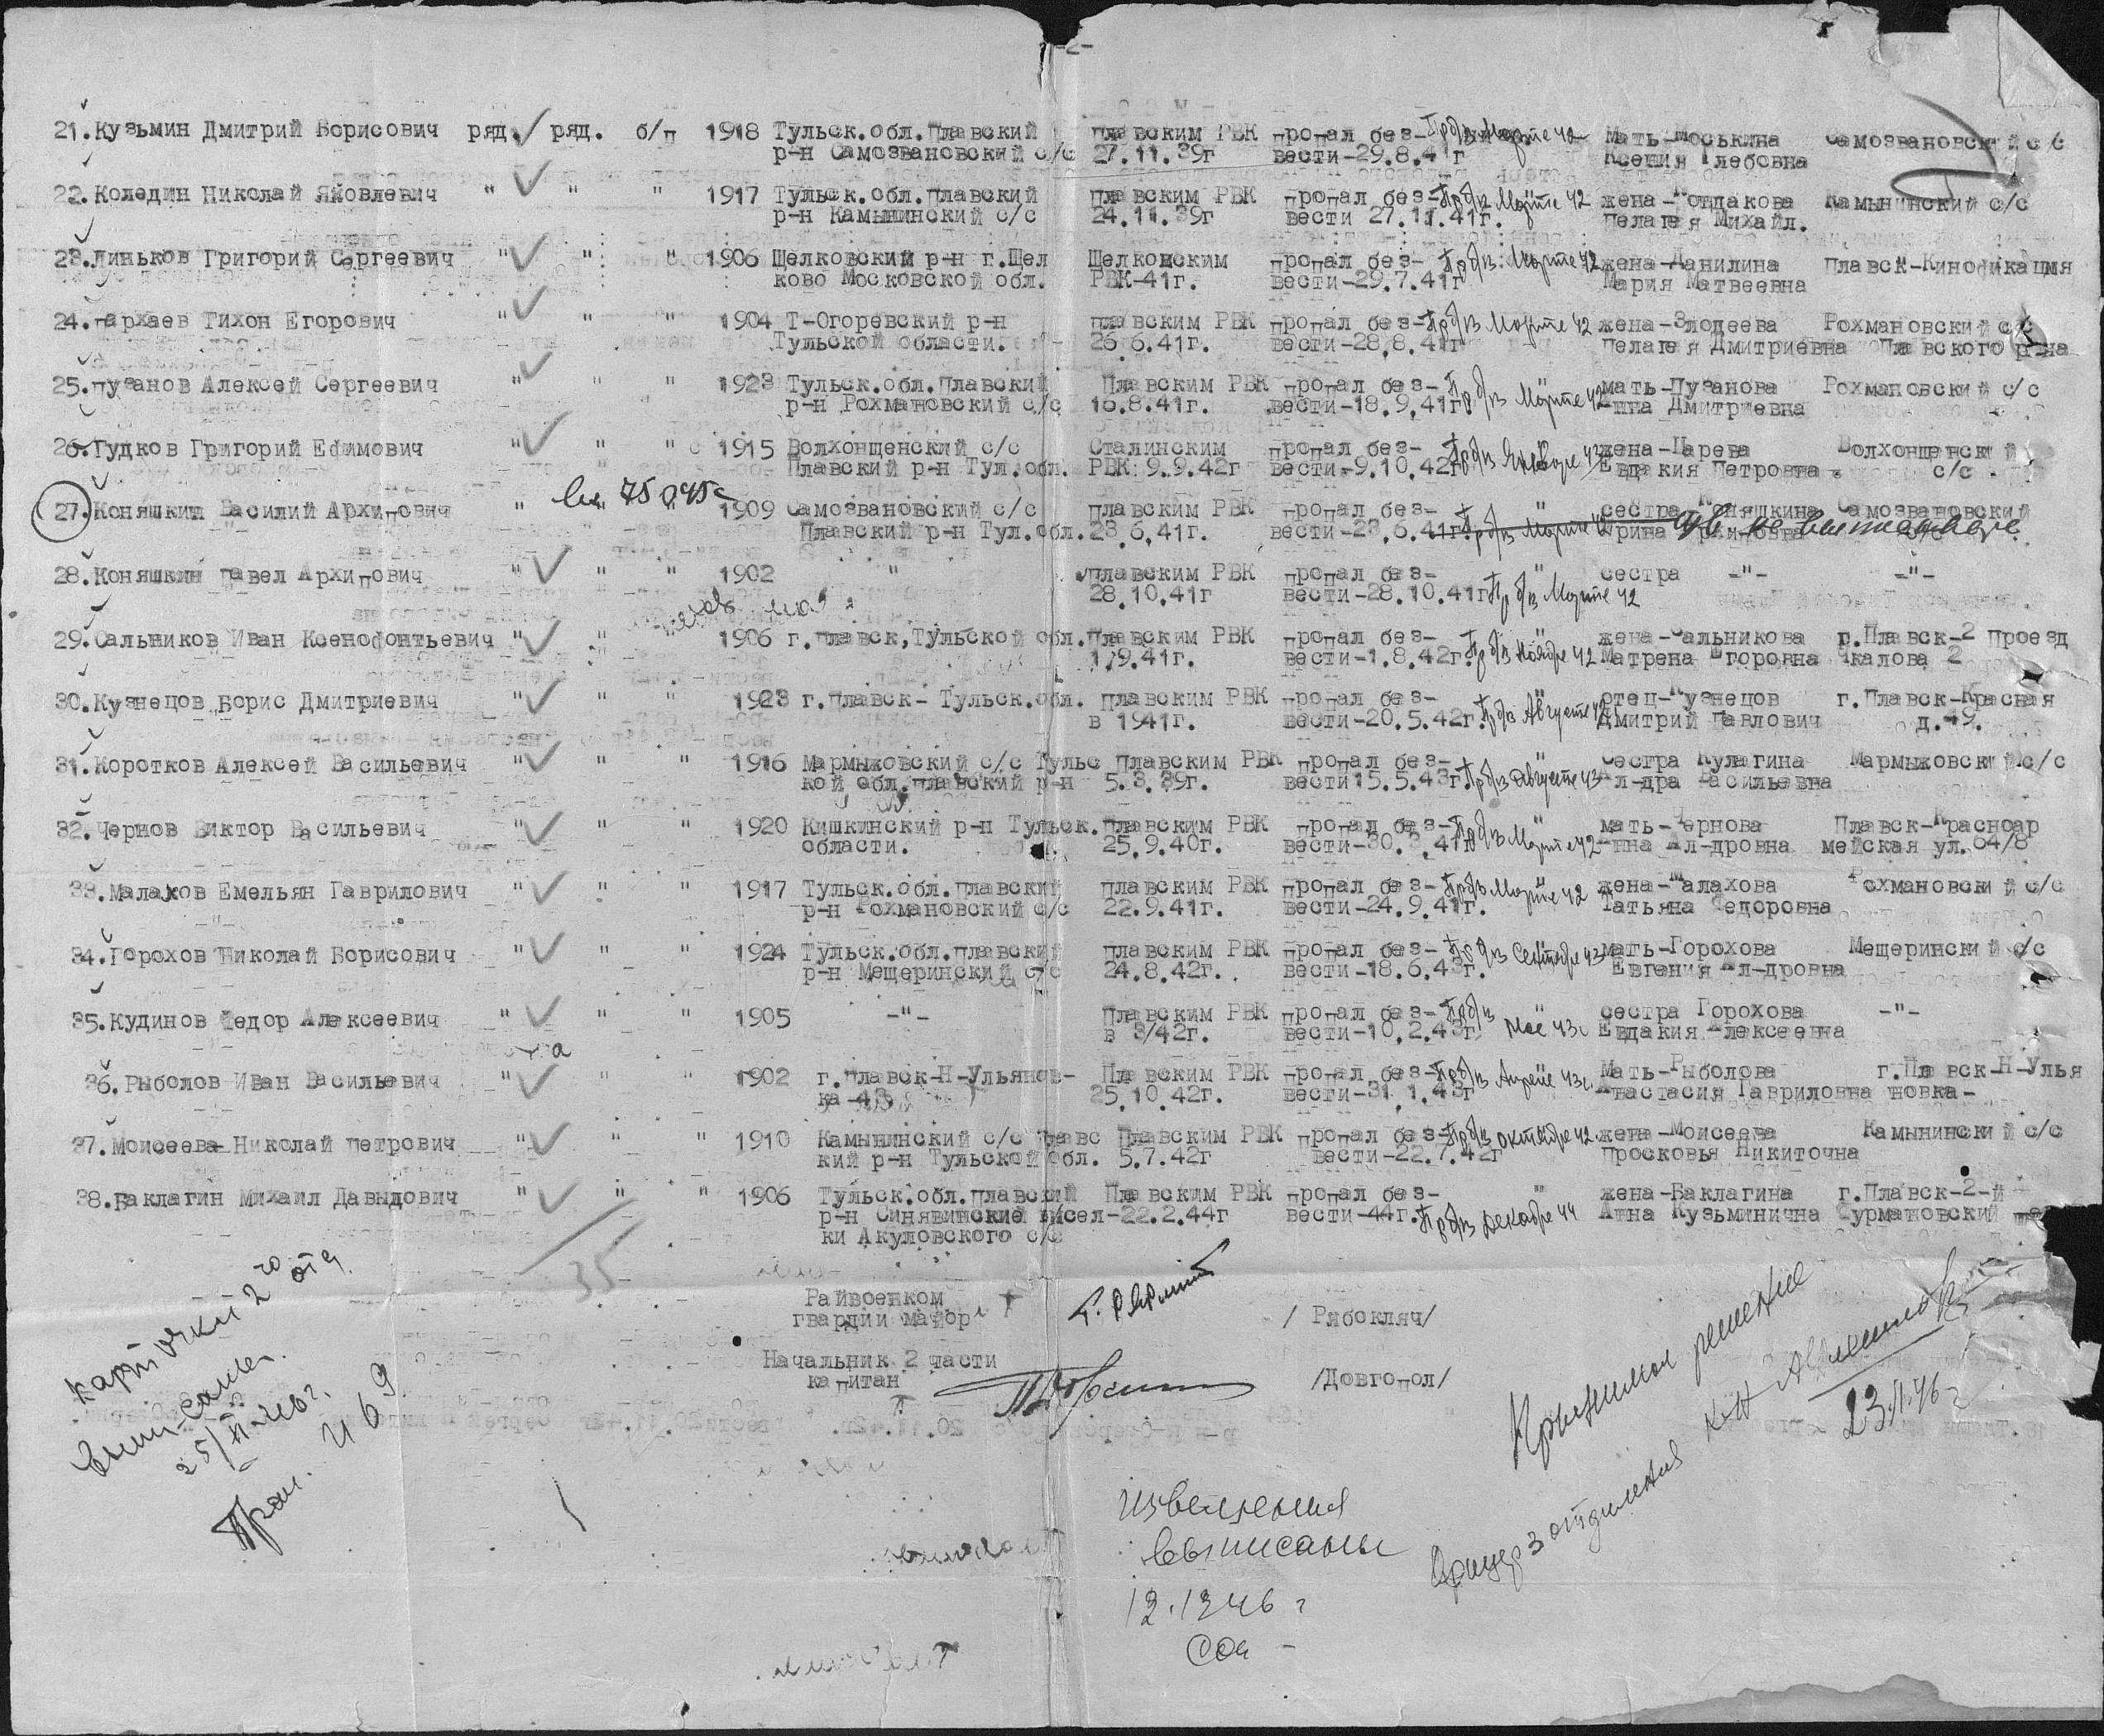 -2-
21.Кузьмин Дмитрий Борисович ряд. ряд. б/п 1918 Тульск.обл.Плавский Плавским РВК пропал без- Пр б/в Марте 42 Мать-Моськина Самозвановский с/с
р-н Самозвановский с/с 27.11.39г вести-29.8.41г Ксения Глебовна
22.Коледин Николай Яковлевич " " " 1917 Тульск.обл.Плавский Плавским РВК пропал без- Пр б/в Марте 42 жена-Кондакова Камынинский с/с
р-н Камынинский с/с 24.11.39г вести 27.11.41г. Пелагея Михайл.
23.Линьков Григорий Сергеевич " " " 1906 Щелковский р-н г.Щел Щелковским пропал без- Пр б/в Марте 42 жена-Данилина Плавск-Кинофикация
ково Московской обл. РВК-41г. вести-29.7.41г Мария Матвеевна
24.Пархаев Тихон Егорович " " " 1904 Т-Огоревский р-н Плавским РВК пропал без- Пр б/в Марте 42 жена-Злодеева Рохмановский с/с
Тульской области. 26.6.41г. вести-28.8.41г Пелагея Дмитриевна Плавского р-на
25.Пузанов Алексей Сергеевич " " " 1923 Тульск.обл.Плавский Плавским РВК пропал без- Пр б/в Марте 42 мать-Пузанова Рохмановский с/с
р-н Рохмановский с/с 16.8.41г. вести-18.9.41г Анна Дмитриевна
26.Гудков Григорий Ефимович " " " 1915 Волхонщенский с/с Сталинским пропал без- Пр б/в Январе 43 жена-Царева Волхонщенский
Плавский р-н Тул.обл. РВК 9.9.42г вести-9.10.42г Евдакия Петровна с/с
27.Коняшкин Василий Архипович " " " 1909 Самозвановский с/с Плавским РВК пропал без- " сестра Коняшкина Самозвановский
Плавский р-н Тул.обл. 23.6.41г. вести-23.6.41г. Пр б/в Марте 42
28.Коняшкин Павел Архипович " " " 1902 " Плавским РВК пропал без- " сестра -"- -"-
28.10.41г вести-28.10.41г Пр б/в Марте 42
29.Сальников Иван Ксенофонтьевич " " 1906 г.Плавск,Тульской обл. Плавским РВК пропал без- " жена-Сальникова г.Плавск-2 Проезд
1.9.41г. вести-1.8.42г. Пр б/в Ноябре 42 Матрена Егоровна Чкалова 2
30.Кузнецов Борис Дмитриевич " " " 1923 г.Плавск- Тульск.обл. Плавским РВК пропал без- " отец-Кузнецов г.Плавск-Красная
в 1941г. вести-20.5.42г. Пр б/в Августе 42 Дмитрий Павлович д.49.
31.Коротков Алексей Васильевич " " " 1916 Мармыжовский с/с Тульс Плавским РВК пропал без- " сестра Кулагина Мармыжовский с/с
кой обл.Плавский р-н 5.3.39г. вести 15.5.43г. Пр б/в Августе 43 Ал-дра Васильевна
32.Чернов Виктор Васильевич " " " 1920 Кишкинский р-н Тульск. Плавским РВК пропал без- " мать-Чернова Плавск-Красноар
области. 25.9.40г. вести-30.3.41г Пр б/в Марте 42 Анна Ал-дровна мейская ул.64/8
33.Малахов Емельян Гаврилович " " " 1917 Тульск.обл.Плавский Плавским РВК пропал без- Пр б/в Марте 42 жена-Малахова Рохмановский с/с
р-н Рохмановский с/с 22.9.41г. вести-24.9.41г. Татьяна Федоровна
34.Горохов Николай Борисович " " " 1924 Тульск.обл.Плавский Плавским РВК пропал без- Пр б/в Сентябре 43 мать-Горохова Мещеринский с/с
р-н Мещеринский с/с 24.8.42г. вести-18.6.43г. Евгения Ал-дровна
35.Кудинов Федор Алексеевич " " " 1905 -"- Плавским РВК пропал без- Пр б/в " сестра Горохова -"-
в 3/42г. вести-10.2.43г. Мае 43г Евдакия Алексеевна
36.Рыболов Иван Васильевич " " " 1902 г.Плавск-Н-Ульянов- Плавским РВК пропал без- Пр б/в Апреле 43г. Мать-Рыболова г.Плавск-Н-Улья
ка-43 25.10.42г. вести-31.1.43г Анастасия Гавриловна новка-
37.Моисеева Николай Петрович " " " 1910 Камынинский с/с Плавс Плавским РВК пропал без- Пр б/в октябре 42. жена-Моисеева Камынинский с/с
кий р-н Тульской обл. 5.7.42г вести-22.7.42г Просковья Никиточна
38.Баклагин Михаил Давыдович " " " 1906 Тульск.обл.Плавский Плавским РВК пропал без- " жена-Баклагина г.Плавск-2-й
р-н Синявинские высел- 22.2.44г вести-44г. Пр б/в декабре 44 Анна Кузьминична Сурмановский
ки Акуловского с/с
35
Райвоенком
гвардии майор / Рябокляч/
Начальник 2 части
капитан /Довгопол/
Карточки 2го отд.
выписаны.
25/XI-46г.
Принимал решение
Офицер 3 отделения к-н
23.XI.46г
извещения
выписаны
12.12 46 г